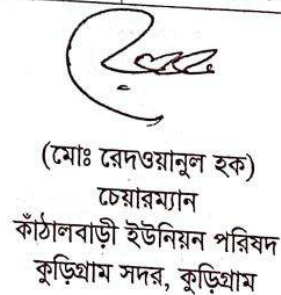 (মোঃ রেদওয়ানুল হক)
চেয়ারম্যান
কাঁঠালবাড়ী ইউনিয়ন পরিষদ
কুড়িগ্রাম সদর, কুড়িগ্রাম